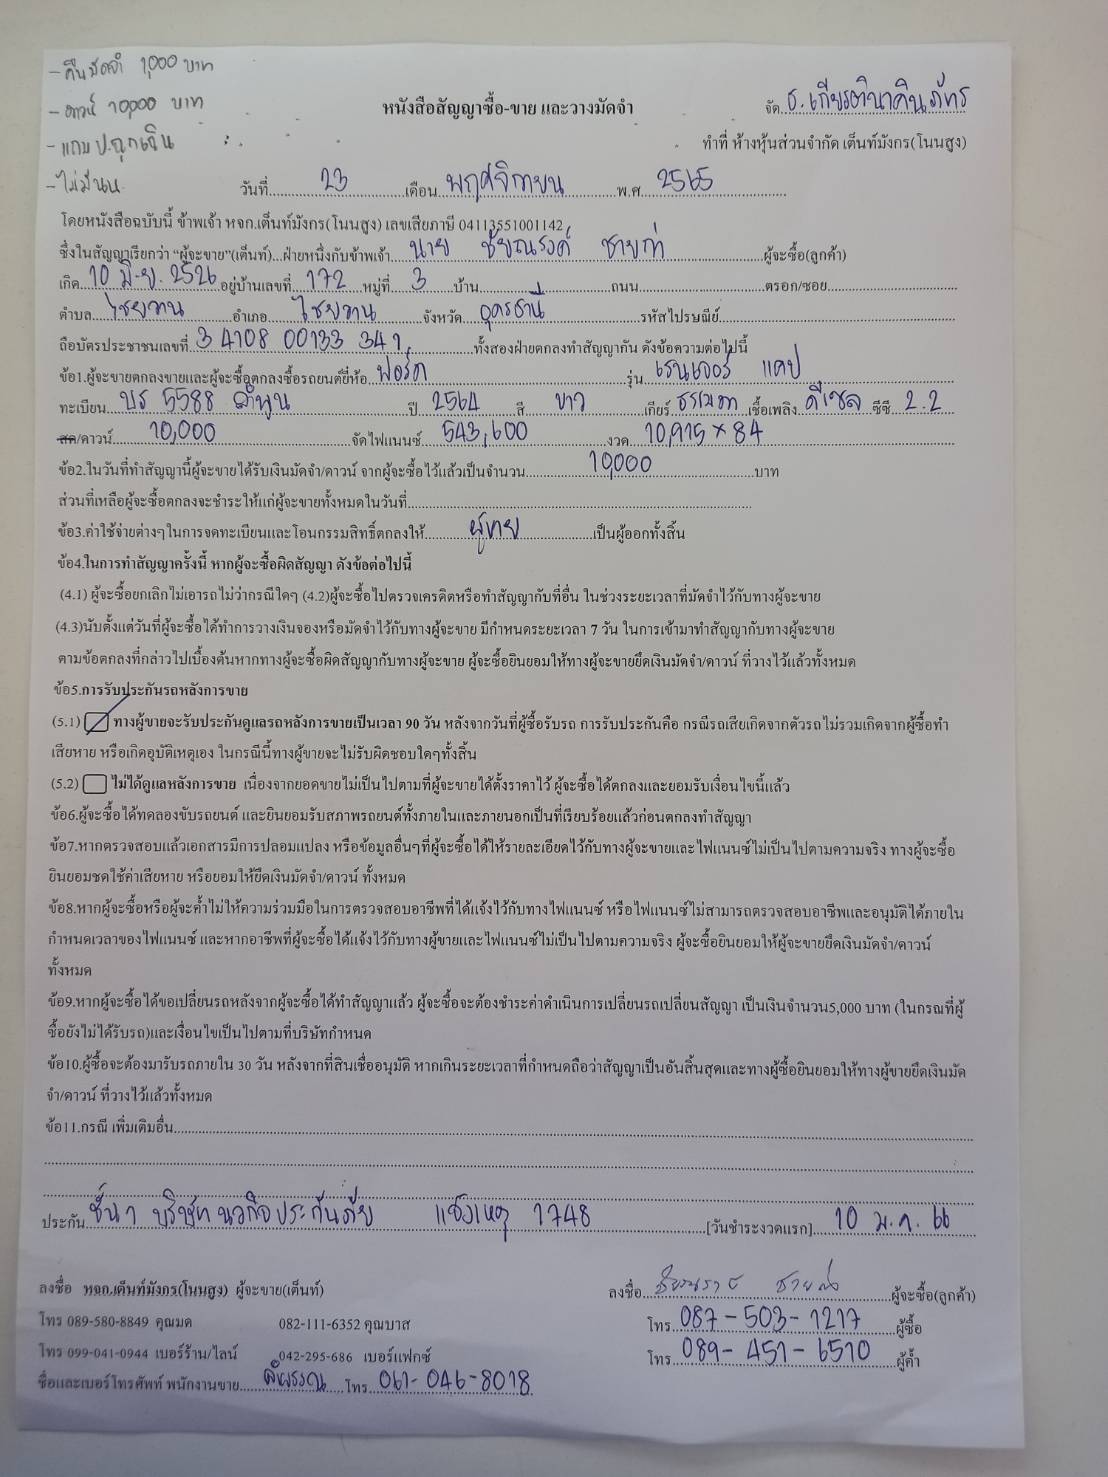 - คืนมัดจำ 1,000 บาท
- ดาวน์ 10,000 บาท
- แถม ป.ฉุกเฉิน
- ไม่มีโน
หนังสือสัญญาซื้อ-ขาย และวางมัดจำ
จัด ธ.เกียรตินาคินภัทร
ทำที่ ห้างหุ้นส่วนจำกัด เต็นท์มังกร(โนนสูง)
วันที่ 23 เดือน พฤศจิกายน พ.ศ. 2565
โดยหนังสือฉบับนี้ ข้าพเจ้า หจก.เต็นท์มังกร(โนนสูง) เลขเสียภาษี 04113551001142
ซึ่งในสัญญาเรียกว่า "ผู้จะขาย"(เต็นท์)...ฝ่ายหนึ่งกับข้าพเจ้า นาย ชัยณรงค์ ชายก่ำ ผู้จะซื้อ(ลูกค้า)
เกิด 10 มิ.ย. 2526 อยู่บ้านเลขที่ 172 หมู่ที่ 3 บ้าน ถนน ตรอก/ซอย
ตำบล ไชยวาน อำเภอ ไชยวาน จังหวัด อุดรธานี รหัสไปรษณีย์
ถือบัตรประชาชนเลขที่ 3 4108 00133 341 ทั้งสองฝ่ายตกลงทำสัญญากัน ดังข้อความต่อไปนี้
ข้อ1.ผู้จะขายตกลงขายและผู้จะซื้อตกลงซื้อรถยนต์ยี่ห้อ ฟอร์ด รุ่น เรนเจอร์ แคป
ทะเบียน บร 5588 ลำพูน ปี 2564 สี ขาว เกียร์ ธรรมดา เชื้อเพลิง ดีเซล ซีซี 2.2
สด/ดาวน์ 10,000 จัดไฟแนนซ์ 543,600 งวด 10,915 × 84
ข้อ2.ในวันที่ทำสัญญานี้ผู้จะขายได้รับเงินมัดจำ/ดาวน์ จากผู้จะซื้อไว้แล้วเป็นจำนวน 10,000 บาท
ส่วนที่เหลือผู้จะซื้อตกลงจะชำระให้แก่ผู้จะขายทั้งหมดในวันที่
ข้อ3.ค่าใช้จ่ายต่างๆในการจดทะเบียนและโอนกรรมสิทธิ์ตกลงให้ ผู้ขาย เป็นผู้ออกทั้งสิ้น
ข้อ4.ในการทำสัญญาครั้งนี้ หากผู้จะซื้อผิดสัญญา ดังข้อต่อไปนี้
(4.1) ผู้จะซื้อยกเลิกไม่เอารถไม่ว่ากรณีใดๆ (4.2)ผู้จะซื้อไปตรวจเครดิตหรือทำสัญญากับที่อื่น ในช่วงระยะเวลาที่มัดจำไว้กับทางผู้จะขาย
(4.3)นับตั้งแต่วันที่ผู้จะซื้อได้ทำการวางเงินจองหรือมัดจำไว้กับทางผู้จะขาย มีกำหนดระยะเวลา 7 วัน ในการเข้ามาทำสัญญากับทางผู้จะขาย
ตามข้อตกลงที่กล่าวไปเบื้องต้นหากทางผู้จะซื้อผิดสัญญากับทางผู้จะขาย ผู้จะซื้อยินยอมให้ทางผู้จะขายยึดเงินมัดจำ/ดาวน์ ที่วางไว้แล้วทั้งหมด
ข้อ5.การรับประกันรถหลังการขาย
(5.1) ทางผู้ขายจะรับประกันดูแลรถหลังการขายเป็นเวลา 90 วัน หลังจากวันที่ผู้ซื้อรับรถ การรับประกันคือ กรณีรถเสียเกิดจากตัวรถไม่รวมเกิดจากผู้ซื้อทำ
เสียหาย หรือเกิดอุบัติเหตุเอง ในกรณีนี้ทางผู้ขายจะไม่รับผิดชอบใดๆทั้งสิ้น
(5.2) ไม่ได้ดูแลหลังการขาย เนื่องจากยอดขายไม่เป็นไปตามที่ผู้จะขายได้ตั้งราคาไว้ ผู้จะซื้อได้ตกลงและยอมรับเงื่อนไขนี้แล้ว
ข้อ6.ผู้จะซื้อได้ทดลองขับรถยนต์ และยินยอมรับสภาพรถยนต์ทั้งภายในและภายนอกเป็นที่เรียบร้อยแล้วก่อนตกลงทำสัญญา
ข้อ7.หากตรวจสอบแล้วเอกสารมีการปลอมแปลง หรือข้อมูลอื่นๆที่ผู้จะซื้อได้ให้รายละเอียดไว้กับทางผู้จะขายและไฟแนนซ์ไม่เป็นไปตามความจริง ทางผู้จะซื้อ
ยินยอมชดใช้ค่าเสียหาย หรือยอมให้ยึดเงินมัดจำ/ดาวน์ ทั้งหมด
ข้อ8.หากผู้จะซื้อหรือผู้จะค้ำไม่ให้ความร่วมมือในการตรวจสอบอาชีพที่ได้แจ้งไว้กับทางไฟแนนซ์ หรือไฟแนนซ์ไม่สามารถตรวจสอบอาชีพและอนุมัติได้ภายใน
กำหนดเวลาของไฟแนนซ์ และหากอาชีพที่ผู้จะซื้อได้แจ้งไว้กับทางผู้ขายและไฟแนนซ์ไม่เป็นไปตามความจริง ผู้จะซื้อยินยอมให้ผู้จะขายยึดเงินมัดจำ/ดาวน์
ทั้งหมด
ข้อ9.หากผู้จะซื้อได้ขอเปลี่ยนรถหลังจากผู้จะซื้อได้ทำสัญญาแล้ว ผู้จะซื้อจะต้องชำระค่าดำเนินการเปลี่ยนรถเปลี่ยนสัญญา เป็นเงินจำนวน5,000 บาท (ในกรณที่ผู้
ซื้อยังไม่ได้รับรถ)และเงื่อนไขเป็นไปตามที่บริษัทกำหนด
ข้อ10.ผู้ซื้อจะต้องมารับรถภายใน 30 วัน หลังจากที่สินเชื่ออนุมัติ หากเกินระยะเวลาที่กำหนดถือว่าสัญญาเป็นอันสิ้นสุดและทางผู้ซื้อยินยอมให้ทางผู้ขายยึดเงินมัด
จำ/ดาวน์ ที่วางไว้แล้วทั้งหมด
ข้อ11.กรณี เพิ่มเติมอื่น
ประกัน ชั้น 1 บริษัท นวกิจประกันภัย แจ้งเหตุ 1748 [วันชำระงวดแรก] 10 ม.ค. 66
ลงชื่อ หจก.เต็นท์มังกร(โนนสูง) ผู้จะขาย(เต็นท์)
ลงชื่อ ชัยณรงค์ ชายก่ำ ผู้จะซื้อ(ลูกค้า)
โทร 089-580-8849 คุณมด 082-111-6352 คุณบาส
โทร 087-503-1217 ผู้ซื้อ
โทร 099-041-0944 เบอร์ร้าน/ไลน์ 042-295-686 เบอร์แฟกซ์
โทร 089-451-6510 ผู้ค้ำ
ชื่อและเบอร์โทรศัพท์ พนักงานขาย โทร 061-046-8018